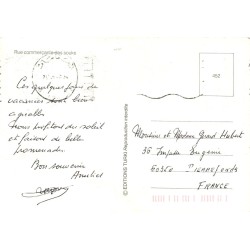 Rue commerçante des souks
Ces quelques jours de
vacances sont bien
agréables
Nous profitons du soleil
et faisons de belles
promenades.
Bon souvenir
© EDITIONS TURKI Reproduction interdite
Monsieur et Madame Gérard Hubert
36 Impasse Eugène
FRANCE